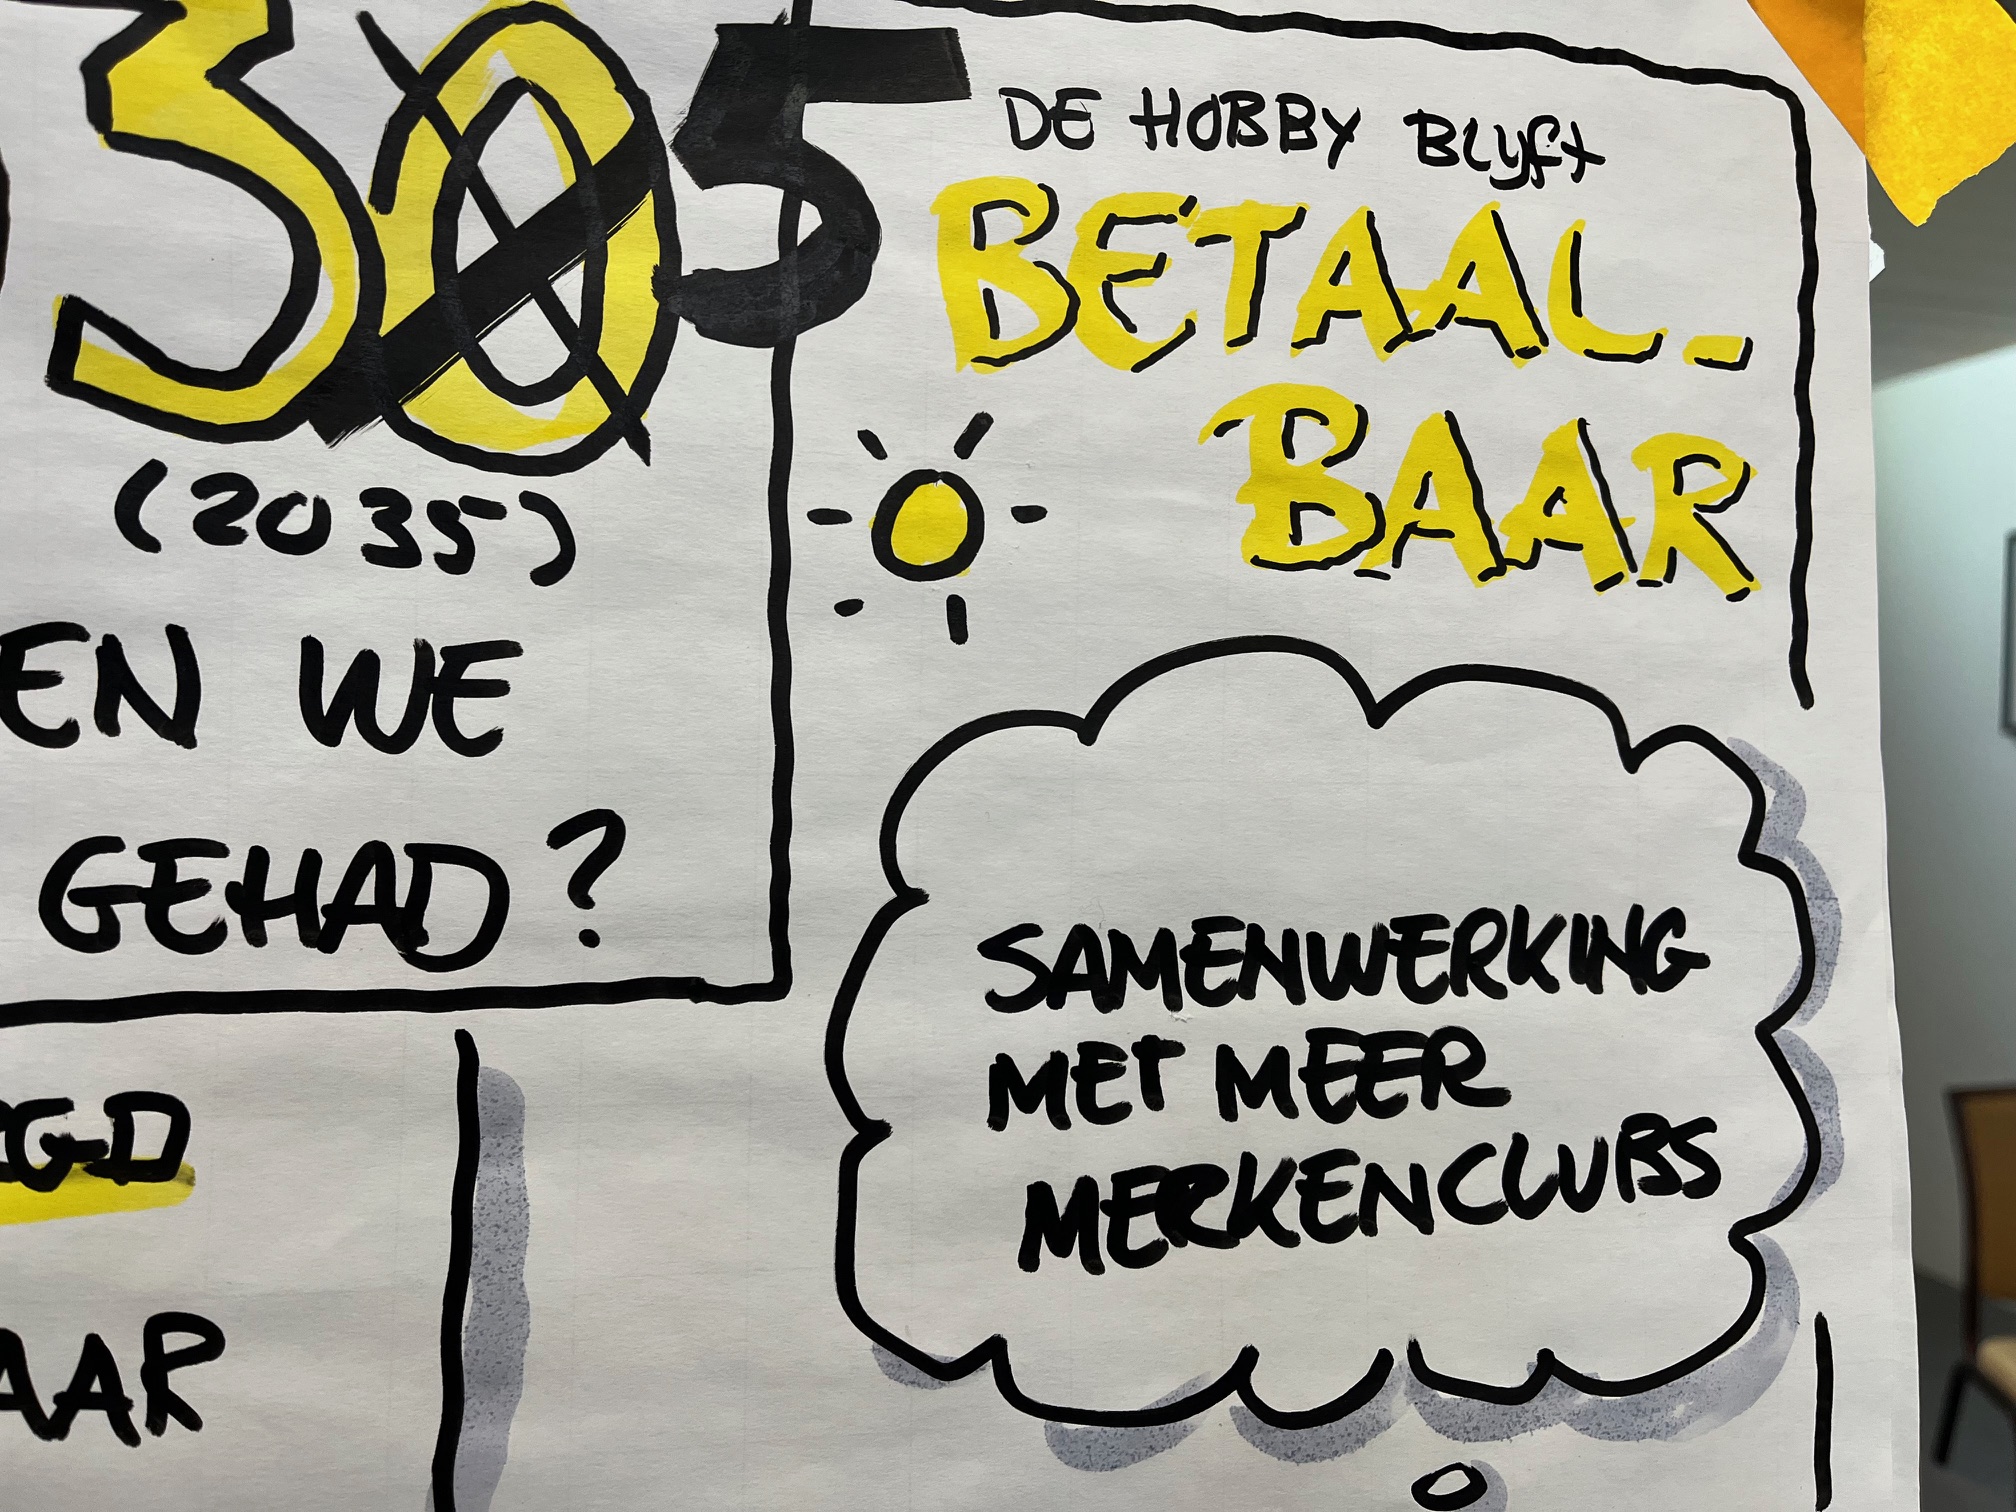 305
(2035)
EN WE
GEHAD?
GD
AAR
DE HOBBY BLYFT
BETAAL-
BAAR
SAMENWERKING
MET MEER
MERKENCLUBS